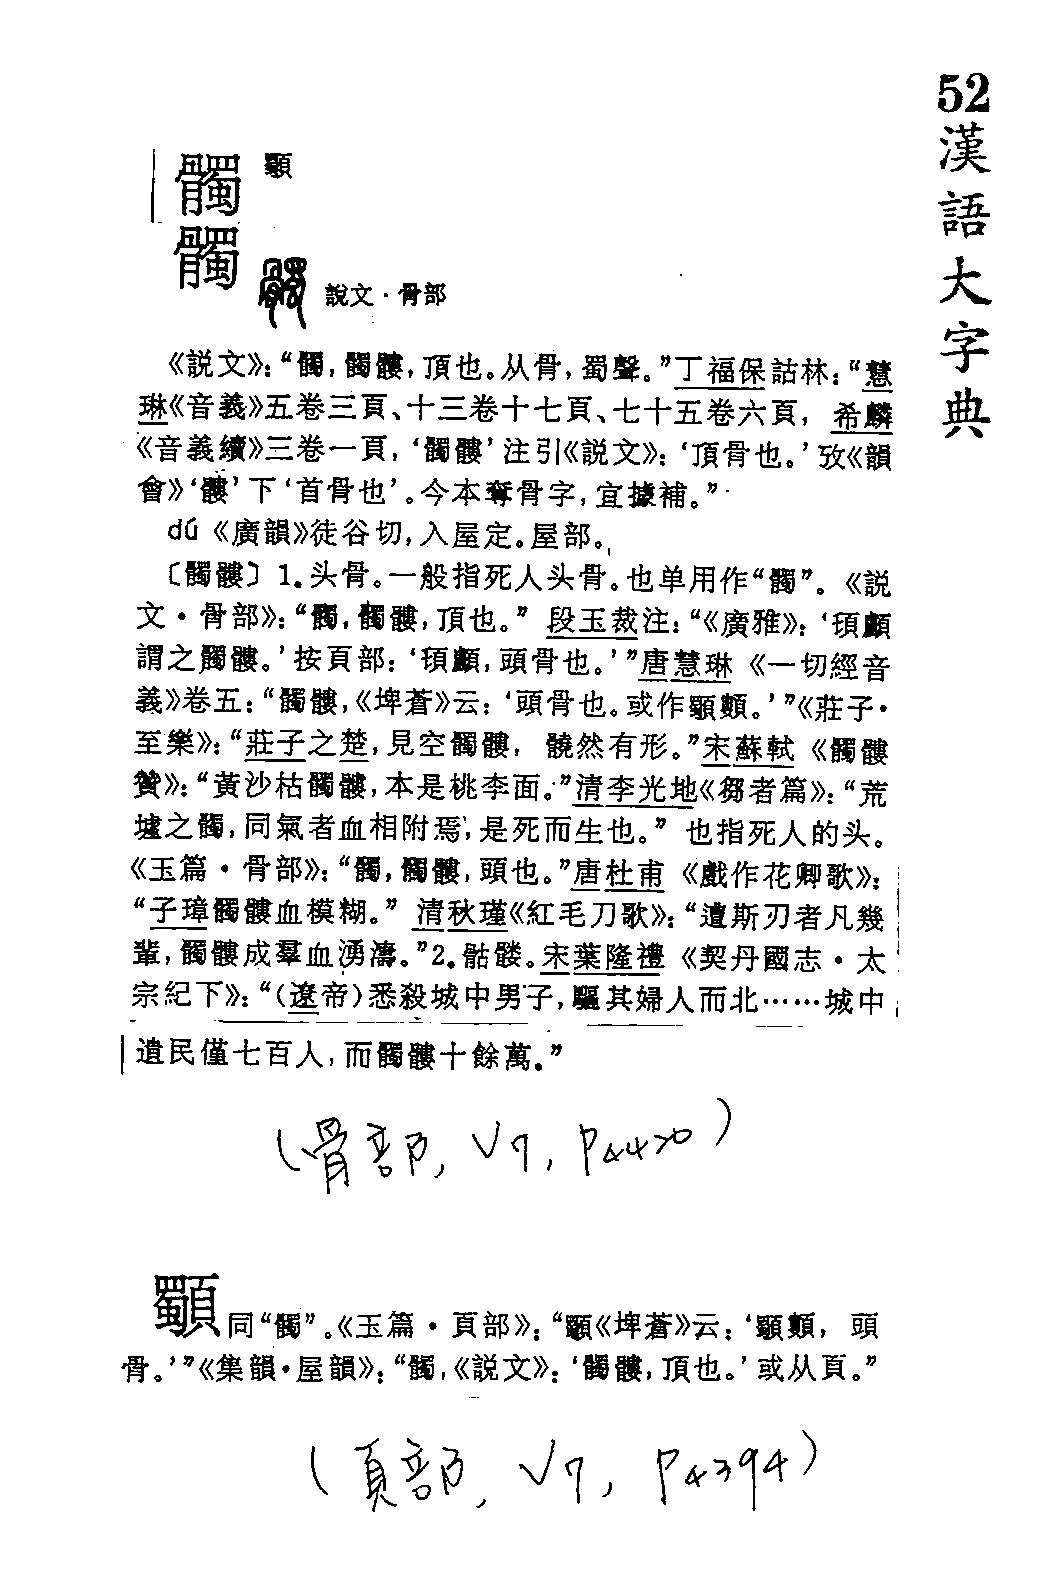 52漢語大字典
髑 顝
髑 說文·骨部
《説文》：“髑，髑髏，頂也。从骨，蜀聲。”丁福保詁林：“慧
琳《音義》五卷三頁、十三卷十七頁、七十五卷六頁，希麟
《音義續》三卷一頁，‘髑髏’注引《説文》：‘頂骨也。’攷《韻
會》‘髏’下‘首骨也’。今本奪骨字，宜據補。”
dú《廣韻》徒谷切，入屋定。屋部。
〔髑髏〕1.头骨。一般指死人头骨。也单用作“髑”。《説
文·骨部》：“髑，髑髏，頂也。”段玉裁注：“《廣雅》：‘頊顱
謂之髑髏。’按頁部：‘頊顱，頭骨也。’”唐慧琳《一切經音
義》卷五：“髑髏，《埤蒼》云：‘頭骨也。或作顝顟。’”《莊子·
至樂》：“莊子之楚，見空髑髏，髐然有形。”宋蘇軾《髑髏
贊》：“黃沙枯髑髏，本是桃李面。”清李光地《芻者篇》：“荒
墟之髑，同氣者血相附焉，是死而生也。”也指死人的头。
《玉篇·骨部》：“髑，髑髏，頭也。”唐杜甫《戲作花卿歌》：
“子璋髑髏血模糊。”清秋瑾《紅毛刀歌》：“遭斯刃者凡幾
輩，髑髏成羣血湧濤。”2.骷髅。宋葉隆禮《契丹國志·太
宗紀下》：“（遼帝）悉殺城中男子，驅其婦人而北……城中
遺民僅七百人，而髑髏十餘萬。”
（骨部，V7，P4420）
同“髑”。《玉篇·頁部》：“《埤蒼》云：‘頭
骨。’”《集韻·屋韻》：“髑，《説文》：‘髑髏，頂也。’或从頁。”
（頁部，V7，P4394）